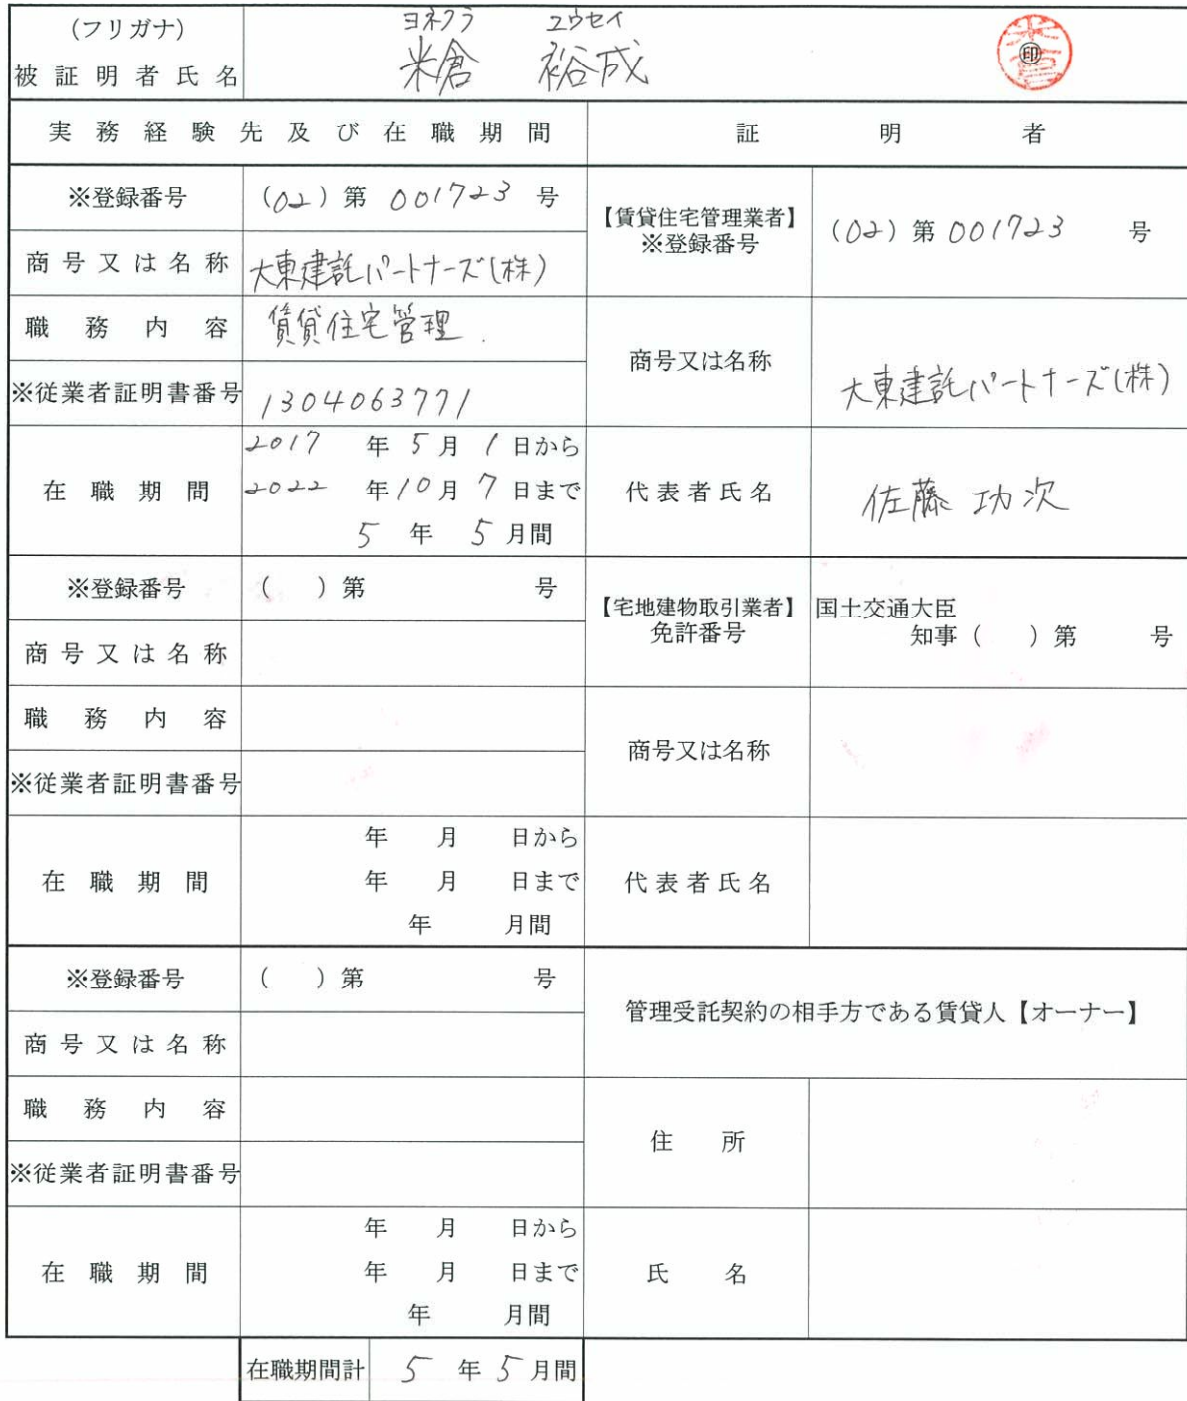 (フリガナ) ヨネクラ ユウセイ
被証明者氏名 米倉 裕成 ㊞
実務経験先及び在職期間 証明者
※登録番号 (02)第 001723 号
【賃貸住宅管理業者】
※登録番号 (02)第 001723 号
商号又は名称 大東建託パートナーズ(株)
職務内容 賃貸住宅管理.
商号又は名称 大東建託パートナーズ(株)
※従業者証明書番号 1304063771
在職期間 2017 年 5 月 1 日から
2022 年 10 月 7 日まで
5 年 5 月間
代表者氏名 佐藤 功次
※登録番号 ( )第 号
【宅地建物取引業者】
免許番号
国土交通大臣
知事( )第 号
商号又は名称
職務内容
商号又は名称
※従業者証明書番号
在職期間 年 月 日から
年 月 日まで
年 月間
代表者氏名
※登録番号 ( )第 号
管理受託契約の相手方である賃貸人【オーナー】
商号又は名称
職務内容
住所
※従業者証明書番号
在職期間 年 月 日から
年 月 日まで
年 月間
氏名
在職期間計 5 年 5 月間